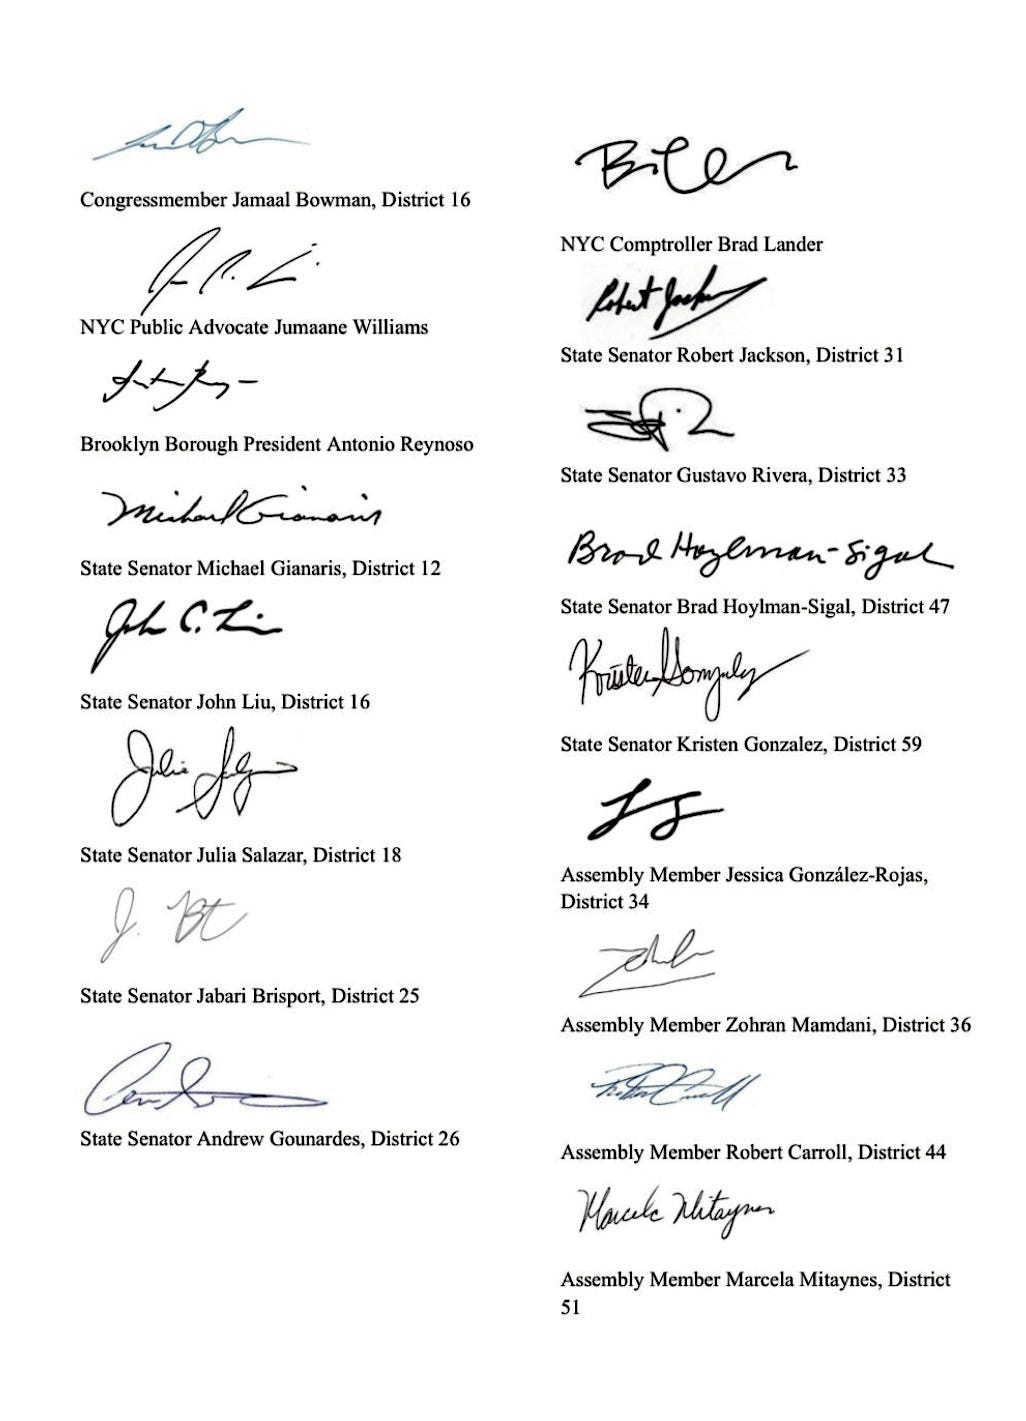 Congressmember Jamaal Bowman, District 16
NYC Public Advocate Jumaane Williams
Brooklyn Borough President Antonio Reynoso
Michael Gianaris
State Senator Michael Gianaris, District 12
John C. Liu
State Senator John Liu, District 16
Julia Salazar
State Senator Julia Salazar, District 18
J.
State Senator Jabari Brisport, District 25
State Senator Andrew Gounardes, District 26
NYC Comptroller Brad Lander
Robert Jackson
State Senator Robert Jackson, District 31
State Senator Gustavo Rivera, District 33
Brad Hoylman-Sigal
State Senator Brad Hoylman-Sigal, District 47
Kristen Gonzalez
State Senator Kristen Gonzalez, District 59
Assembly Member Jessica González-Rojas,
District 34
Assembly Member Zohran Mamdani, District 36
Robert Carroll
Assembly Member Robert Carroll, District 44
Marcela Mitaynes
Assembly Member Marcela Mitaynes, District
51